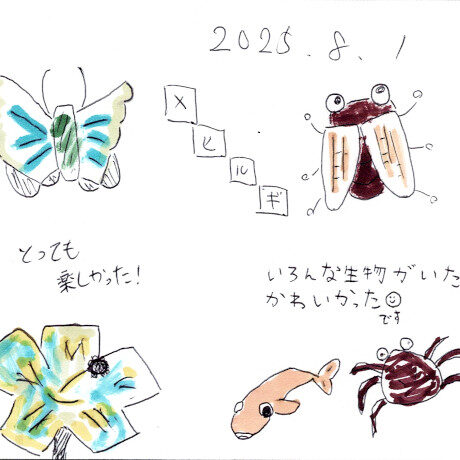 2025.8.1
メヒルギ
とっても
楽しかった！
いろんな生物がいた
かわいかった☺
です